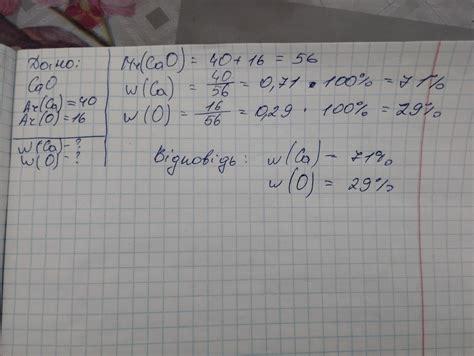 Дано:
CaO
Ar(Ca) = 40
Ar(O) = 16
w(Ca) - ?
w(O) - ?
Mr(CaO) = 40 + 16 = 56
w(Ca) = 40/56 = 0,71 • 100% = 71%
w(O) = 16/56 = 0,29 • 100% = 29%
Відповідь: w(Ca) - 71%
w(O) = 29%